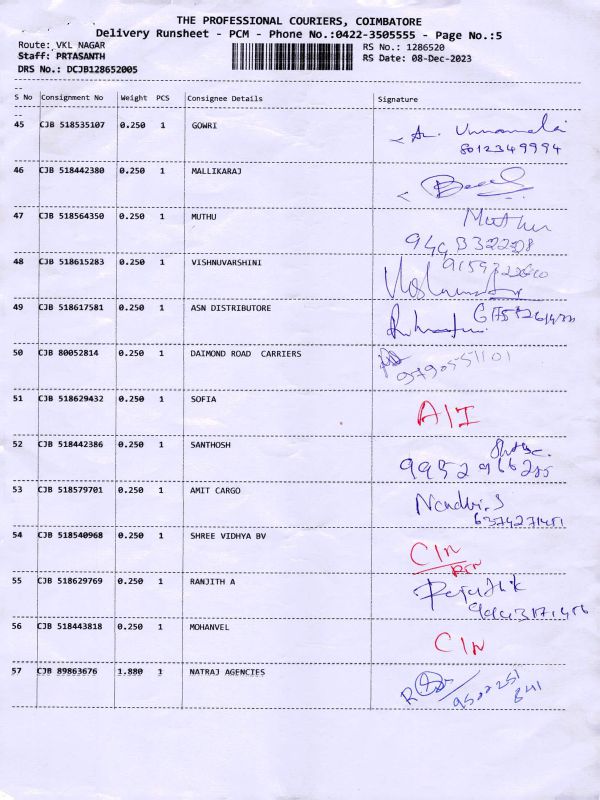 THE PROFESSIONAL COURIERS, COIMBATORE
Delivery Runsheet - PCM - Phone No.:0422-3505555 - Page No.:5
Route: VKL NAGAR RS No.: 1286520
Staff: PRTASANTH RS Date: 08-Dec-2023
DRS No.: DCJB128652005
S No Consignment No Weight PCS Consignee Details Signature
45 CJB 518535107 0.250 1 GOWRI
8012349994
46 CJB 518442380 0.250 1 MALLIKARAJ
47 CJB 518564350 0.250 1 MUTHU Muthu
48 CJB 518615283 0.250 1 VISHNUVARSHINI
49 CJB 518617581 0.250 1 ASN DISTRIBUTORE
50 CJB 80052814 0.250 1 DAIMOND ROAD CARRIERS
9790551101
51 CJB 518629432 0.250 1 SOFIA A/I
52 CJB 518442386 0.250 1 SANTHOSH
9952966285
53 CJB 518579701 0.250 1 AMIT CARGO
6374271451
54 CJB 518540968 0.250 1 SHREE VIDHYA BV C/N
55 CJB 518629769 0.250 1 RANJITH A
56 CJB 518443818 0.250 1 MOHANVEL C/N
57 CJB 89863676 1.880 1 NATRAJ AGENCIES